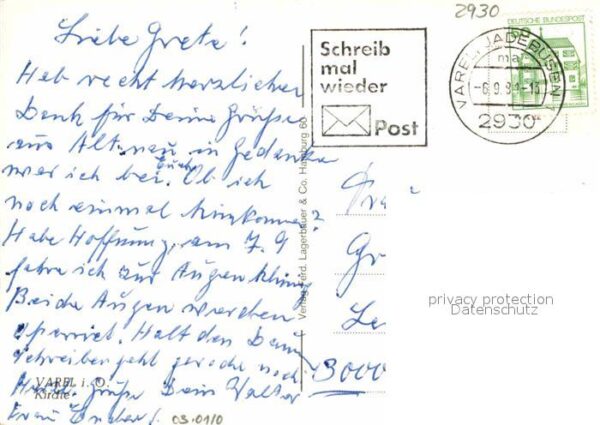 2930
Liebe Grete!
Hab recht herzlichen
Dank für Deine Grüße
aus Altenau in Gedanken
war ich bei Euch. Ob ich
noch einmal hinkomme?
Habe Hoffnung, am 7.9
fahre ich zur Augenklinik
Beide Augen werden
operiert. Halt den Daum
Schreiben geht gerade noch
Herzl. Grüße Dein Walter
Frau
VAREL i. O.
Kirche
03.01/0
Verlag Ferd. Lagerbauer & Co. Hamburg 60
Schreib
mal
wieder
Post
DEUTSCHE BUNDESPOST
VAREL, JADEBUSEN
-6.9.
2930
Fra
Gr
Le
3000
privacy protection
Datenschutz